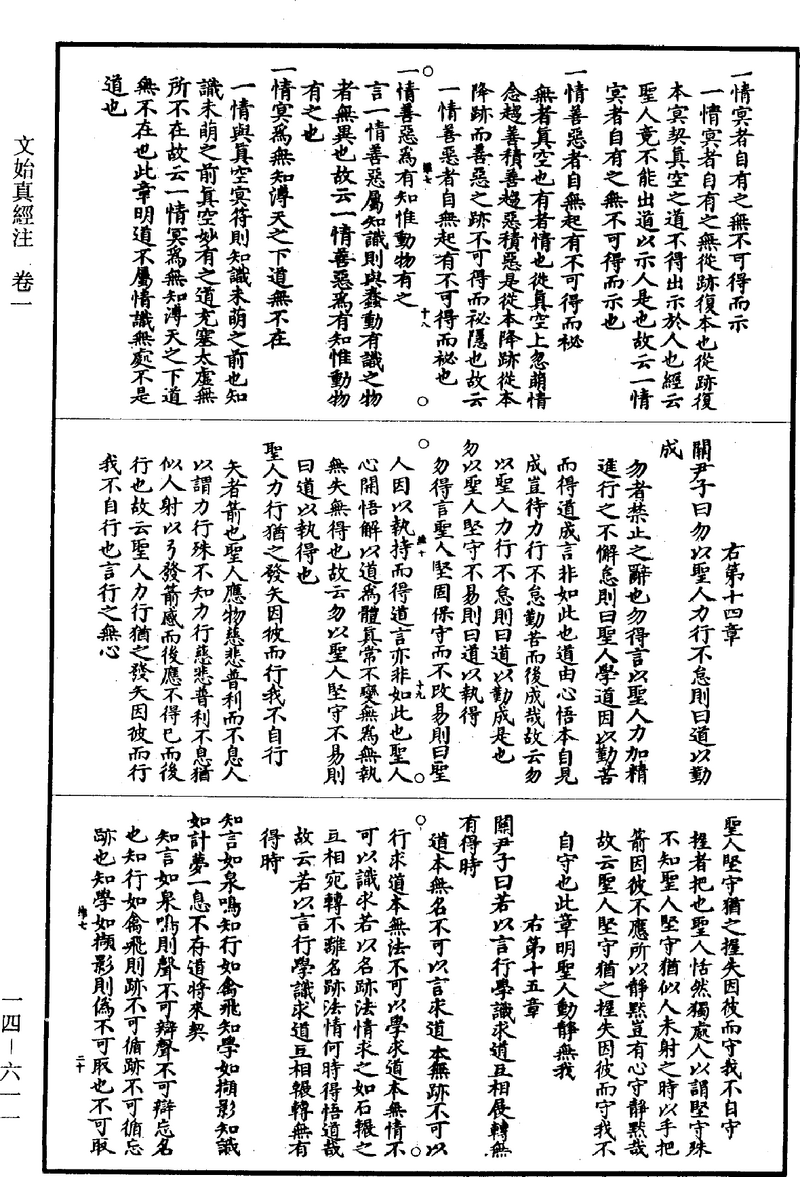 一情冥者自有之無不可得而示
一情冥者自有之無從跡復本也從跡復
本冥契真空之道不得出示於人也經云
聖人竟不能出道以示人是也故云一情
冥者自有之無不可得而示也
一情善惡者自無起有不可得而祕
無者真空也有者情也從真空上忽萌情
念趨善積善趨惡積惡是從本降跡從本
降跡而善惡之跡不可得而祕隱也故云
一情善惡者自無起有不可得而祕也
十八
一情善惡為有知惟動物有之
言一情善惡屬知識則與蠢動有識之物
者無異也故云一情善惡為有知惟動物
有之也
一情冥為無知溥天之下道無不在
一情與真空冥符則知識未萌之前也知
識未萌之前真空妙有之道充塞太虛無
所不在故云一情冥為無知溥天之下道
無不在也此章明道不屬情識無處不是
道也
右第十四章
關尹子曰勿以聖人力行不怠則曰道以勤
成
勿者禁止之辭也勿得言以聖人力加精
進行之不懈怠則曰聖人學道因以勤苦
而得道成言非如此也道由心悟本自見
成豈待力行不怠勤苦而後成哉故云勿
以聖人力行不怠則曰道以勤成是也
勿以聖人堅守不易則曰道以執得
勿得言聖人堅固保守而不改易則曰聖
十九
人因以執持而得道言亦非如此也聖人
心開悟解以道為體真常不變無為無執
無失無得也故云勿以聖人堅守不易則
曰道以執得也
聖人力行猶之發矢因彼而行我不自行
矢者箭也聖人應物慈悲普利而不息人
以謂力行殊不知力行慈悲普利不息猶
似人射以弓發箭感而後應不得已而後
行也故云聖人力行猶之發矢因彼而行
我不自行也言行之無心
聖人堅守猶之握矢因彼而守我不自守
握者把也聖人恬然獨處人以謂堅守殊
不知聖人堅守猶似人未射之時以手把
箭因彼不應所以靜默豈有心守靜默哉
故云聖人堅守猶之握矢因彼而守我不
自守也此章明聖人動靜無我
右第十五章
關尹子曰若以言行學識求道互相展轉無
有得時
道本無名不可以言求道本無跡不可以
行求道本無法不可以學求道本無情不
可以識求若以名跡法情求之如石輾之
互相宛轉不離名跡法情何時得悟道哉
故云若以言行學識求道互相輾轉無有
得時
知言如泉鳴知行如禽飛知學如擷影知識
如計夢一息不存道將來契
知言如泉鳴則聲不可辯聲不可辯忘名
也知行如禽飛則跡不可循跡不可循忘
跡也知學如擷影則偽不可取也不可取
二十
文始真經注 卷一
一四－六一一